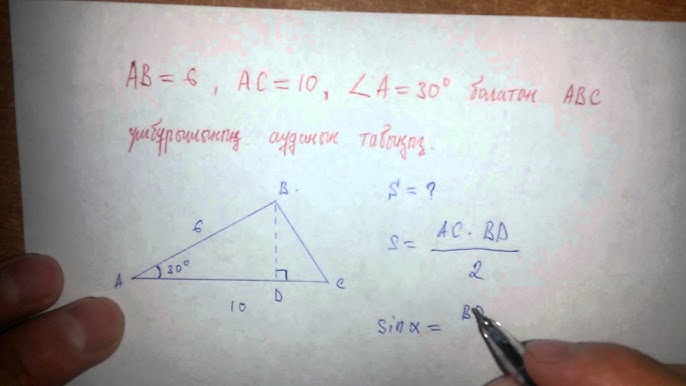 AB = 6, AC = 10, ∠A = 30° болатын ABC
үшбұрышының ауданын табыңыз.
B
6
30°
A
D
C
10
S = ?
S = AC · BD / 2
sin α = BD